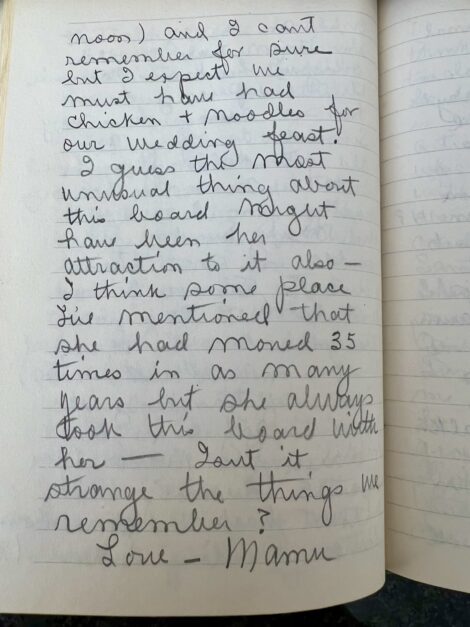 noon) and I cant
remember for sure
but I expect we
must have had
chicken + noodles for
our wedding feast.
I guess the most
unusual thing about
this board might
have been her
attraction to it also —
I think some place
I've mentioned that
she had moved 35
times in as many
years but she always
took this board with
her — Isnt it
strange the things we
remember?
Love — Mamu